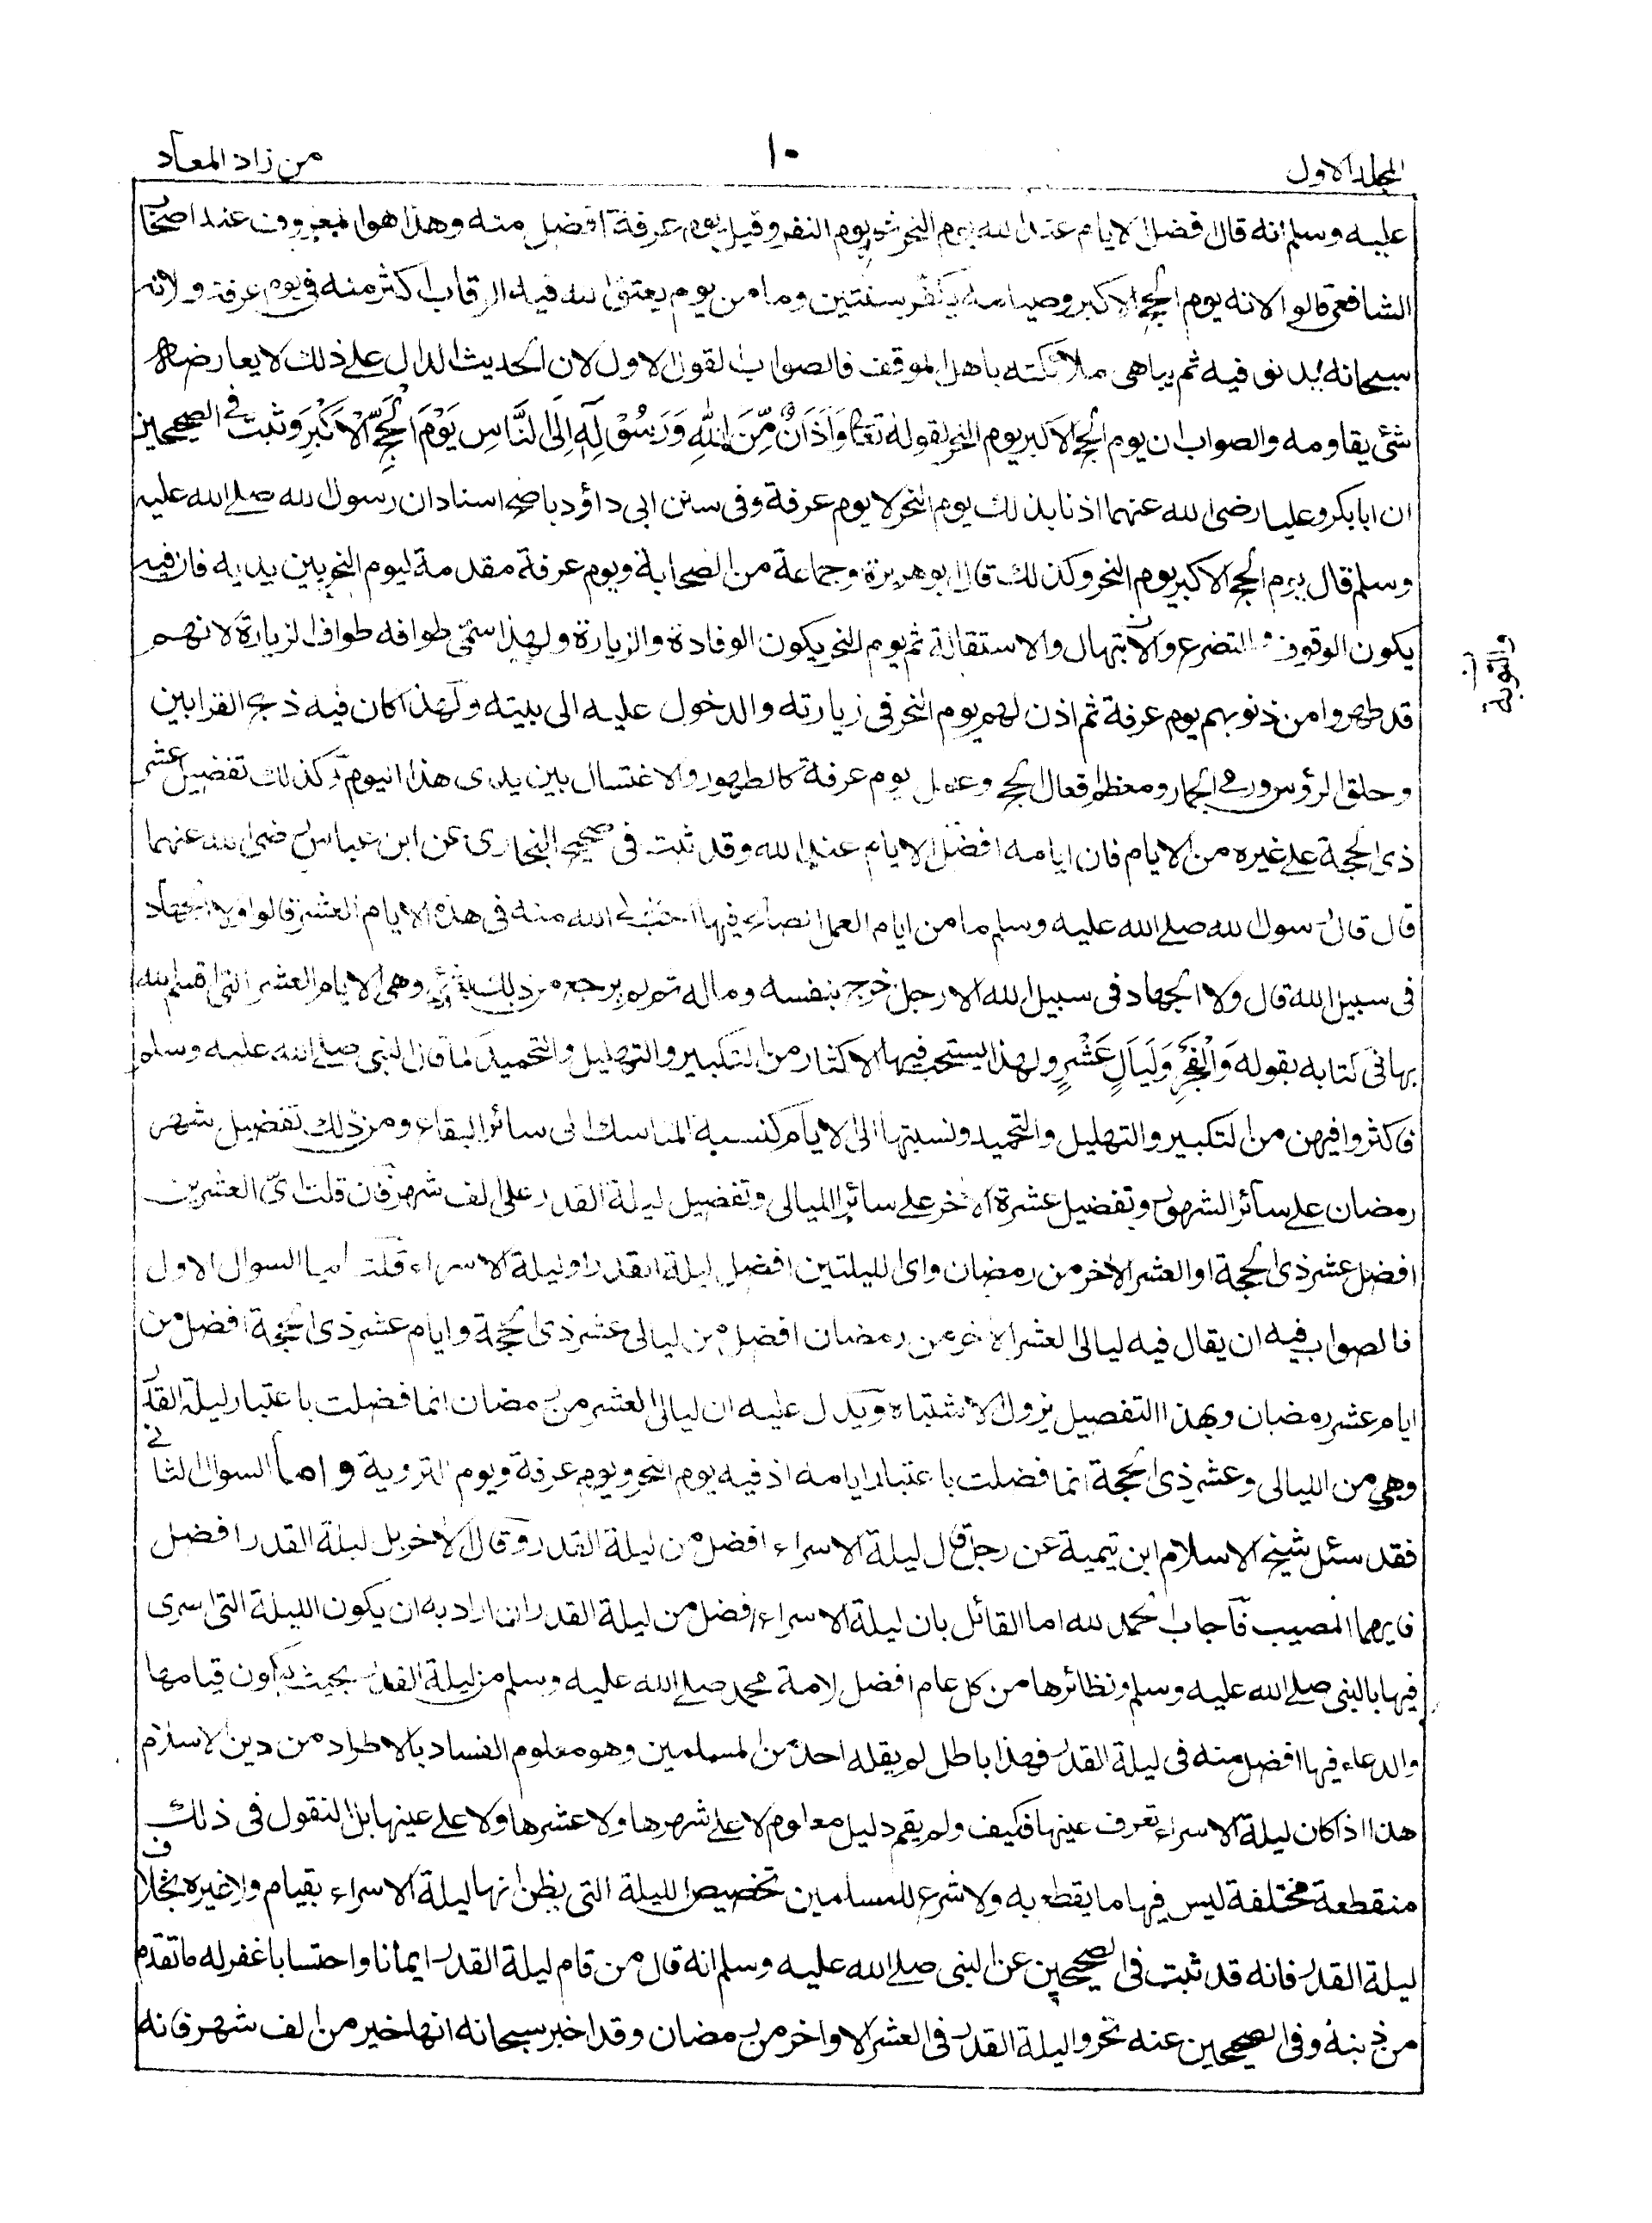 المجلد الاول
١٠
من زاد المعاد
عليه وسلم انه قال افضل الايام عند الله يوم النحر ثم يوم النفر وقيل يوم عرفة افضل منه وهذا هو المعروف عند اصحاب
الشافعى قالوا لانه يوم الحج الاكبر وصيامه يكفر سنتين وما من يوم يعتق الله فيه الرقاب اكثر منه فى يوم عرفة ولانه
سبحانه يدنو فيه ثم يباهى ملائكته باهل الموقف فالصواب القول الاول لان الحديث الدال على ذلك لا يعارضه
شئ يقاومه والصواب ان يوم الحج الاكبر يوم النحر لقوله تعالى وَاَذَانٌ مِّنَ اللّٰهِ وَرَسُوْلِهٖ اِلَى النَّاسِ يَوْمَ الْحَجِّ الْاَكْبَرِ وثبت فى الصحيحين
ان ابا بكر وعليا رضى الله عنهما اذنا بذلك يوم النحر لا يوم عرفة وفى سنن ابى داؤد باصح اسناد ان رسول الله صلى الله عليه
وسلم قال يوم الحج الاكبر يوم النحر وكذلك قال ابو هريرة وجماعة من الصحابة ويوم عرفة مقدمة ليوم النحر بين يديه فان فيه
يكون الوقوف والتضرع والابتهال والاستقالة ثم يوم النحر يكون الوفادة والزيارة ولهذا سمى طوافه طواف الزيارة لانهم
والتوبة
ن
قد طهروا من ذنوبهم يوم عرفة ثم اذن لهم يوم النحر فى زيارته والدخول عليه الى بيته ولهذا كان فيه ذبح القرابين
وحلق الرؤس ورمى الجمار ومعظم افعال الحج وعمل يوم عرفة كالطهور والاغتسال بين يدى هذا اليوم وكذلك تفضيل عشر
ذى الحجة على غيره من الايام فان ايامه افضل الايام عند الله وقد ثبت فى صحيح البخارى عن ابن عباس رضى الله عنهما
قال قال رسول الله صلى الله عليه وسلم ما من ايام العمل الصالح فيها احب الى الله منه فى هذه الايام العشر قالوا ولا الجهاد
فى سبيل الله قال ولا الجهاد فى سبيل الله الا رجل خرج بنفسه وماله ثم لم يرجع من ذلك بشئ وهى الايام العشر التى اقسم الله
بها فى كتابه بقوله وَالْفَجْرِ وَلَيَالٍ عَشْرٍ ولهذا يستحب فيها الاكثار من التكبير والتهليل والتحميد كما قال النبى صلى الله عليه وسلم
فاكثروا فيهن من التكبير والتهليل والتحميد ونسبتها الى الايام كنسبة المناسك الى سائر البقاع ومن ذلك تفضيل شهر
رمضان على سائر الشهور وتفضيل عشرة الاخر على سائر الليالى وتفضيل ليلة القدر على الف شهر فان قلت اىّ العشرين
افضل عشر ذى الحجة او العشر الاخر من رمضان واى الليلتين افضل ليلة القدر او ليلة الاسراء قلت اما السوال الاول
فالصواب فيه ان يقال فيه ليالى العشر الاخر من رمضان افضل من ليالى عشر ذى الحجة وايام عشر ذى الحجة افضل من
ايام عشر رمضان وبهذا التفصيل يزول الاشتباه ويدل عليه ان ليالى العشر من رمضان انما فضلت باعتبار ليلة القدر
وهى من الليالى وعشر ذى الحجة انما فضلت باعتبار ايامه اذ فيه يوم النحر ويوم عرفة ويوم التروية واما السوال الثانى
فقد سئل شيخ الاسلام ابن تيمية عن رجل قال ليلة الاسراء افضل من ليلة القدر وقال الاخر بل ليلة القدر افضل
فايهما المصيب فاجاب الحمد لله اما القائل بان ليلة الاسراء افضل من ليلة القدر ان اراد به ان يكون الليلة التى اسرى
فيها بالنبى صلى الله عليه وسلم ونظائرها من كل عام افضل لامة محمد صلى الله عليه وسلم من ليلة القدر بحيث يكون قيامها
والدعاء فيها افضل منه فى ليلة القدر فهذا باطل لم يقله احد من المسلمين وهو معلوم الفساد بالاطراد من دين الاسلام
هذا اذا كان ليلة الاسراء تعرف عينها فكيف ولم يقم دليل معلوم لا على شهرها ولا عشرها ولا على عينها بل النقول فى ذلك
منقطعة مختلفة ليس فيها ما يقطع به ولا شرع للمسلمين تخصيص الليلة التى يظن انها ليلة الاسراء بقيام ولا غيره بخلاف
ليلة القدر فانه قد ثبت فى الصحيحين عن النبى صلى الله عليه وسلم انه قال من قام ليلة القدر ايمانا واحتسابا غفر له ما تقدم
من ذنبه وفى الصحيحين عنه تحروا ليلة القدر فى العشر الاواخر من رمضان وقد اخبر سبحانه انها خير من الف شهر فانه